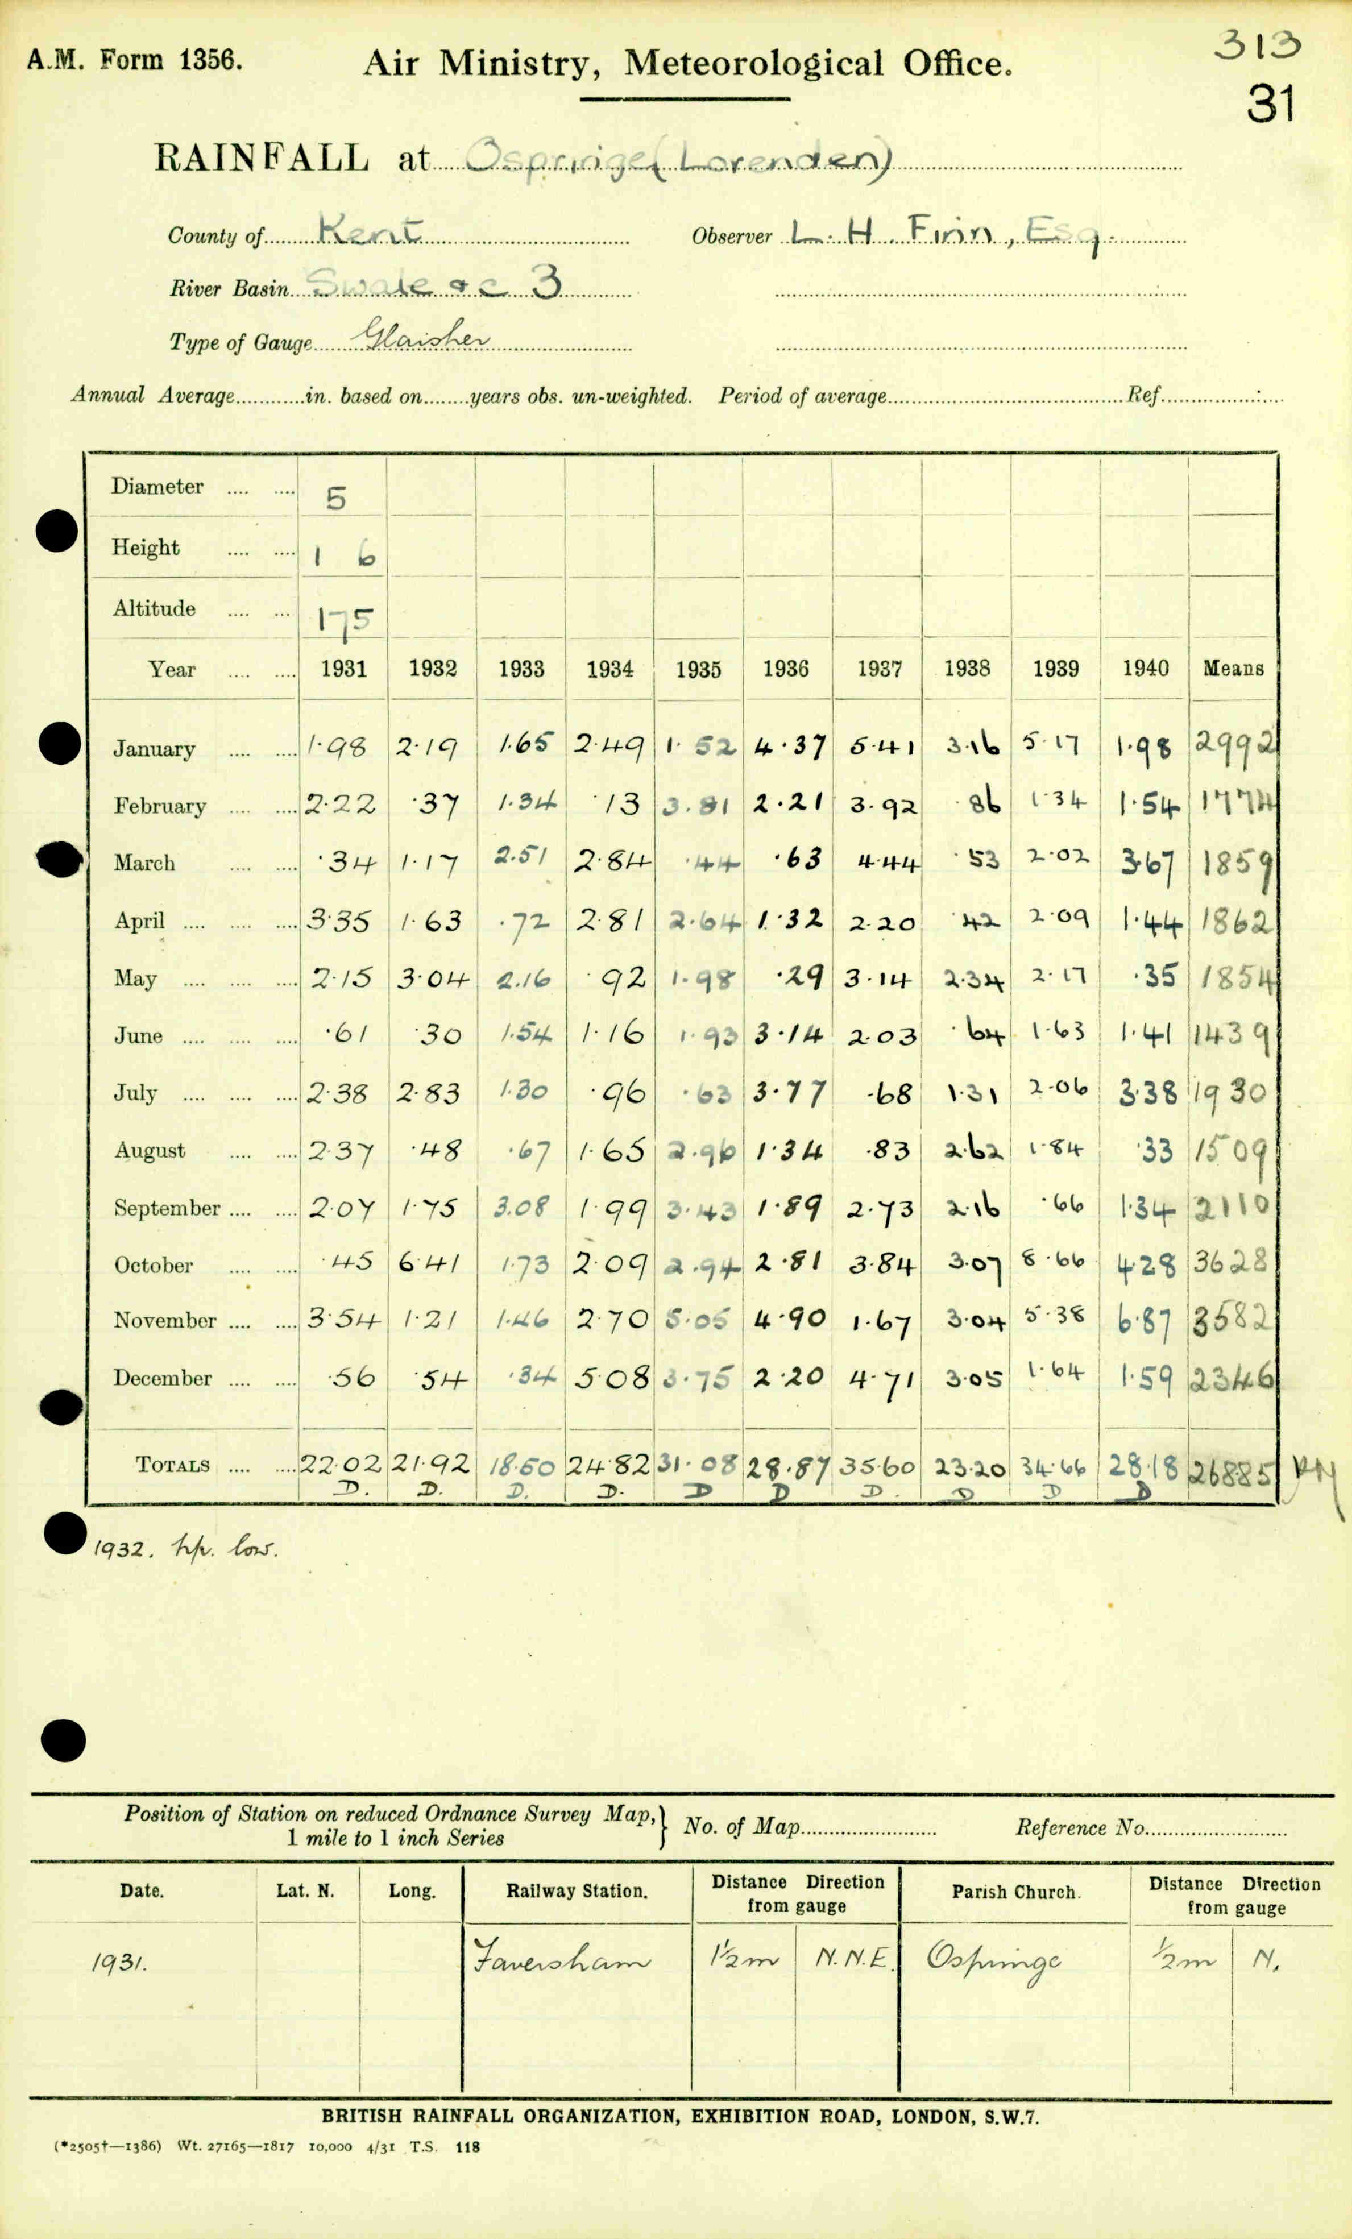 313
A.M. Form 1356. Air Ministry, Meteorological Office.
31
RAINFALL at Ospringe (Lorenden)
County of Kent Observer L. H. Finn, Esq.
River Basin Swale &c 3
Type of Gauge Glaisher
Annual Average............in. based on........years obs. un-weighted. Period of average.......... Ref..........
Diameter .... .... 5
Height .... .... 1 6
Altitude .... .... 175
Year .... .... 1931 1932 1933 1934 1935 1936 1937 1938 1939 1940 Means
January .... .... 1·98 2·19 1·65 2·49 1·52 4·37 5·41 3·16 5·17 1·98 2992
February .... .... 2·22 ·37 1·34 ·13 3·81 2·21 3·92 ·86 1·34 1·54 1774
March .... .... ·34 1·17 2·51 2·84 ·44 ·63 4·44 ·53 2·02 3·67 1859
April .... .... .... 3·35 1·63 ·72 2·81 2·64 1·32 2·20 ·42 2·09 1·44 1862
May .... .... .... 2·15 3·04 2·16 ·92 1·98 ·29 3·14 2·34 2·17 ·35 1854
June .... .... .... ·61 ·30 1·54 1·16 1·93 3·14 2·03 ·64 1·63 1·41 1439
July .... .... .... 2·38 2·83 1·30 ·96 ·63 3·77 ·68 1·31 2·06 3·38 1930
August .... .... 2·37 ·48 ·67 1·65 2·96 1·34 ·83 2·62 1·84 ·33 1509
September .... .... 2·07 1·75 3·08 1·99 3·43 1·89 2·73 2·16 ·66 1·34 2110
October .... .... ·45 6·41 1·73 2·09 2·94 2·81 3·84 3·07 8·66 4·28 3628
November .... .... 3·54 1·21 1·46 2·70 5·05 4·90 1·67 3·04 5·38 6·87 3582
December .... .... ·56 ·54 ·34 5·08 3·75 2·20 4·71 3·05 1·64 1·59 2346
TOTALS .... .... 22·02 21·92 18·50 24·82 31·08 28·87 35·60 23·20 34·66 28·18 26885
D. D. D. D. D D D. D D D
1932. hp. low.
Position of Station on reduced Ordnance Survey Map,} No. of Map.......... Reference No..........
1 mile to 1 inch Series
Date. Lat. N. Long. Railway Station. Distance Direction from gauge Parish Church. Distance Direction from gauge
1931. Faversham 1½m N.N.E. Ospringe ½m N.
BRITISH RAINFALL ORGANIZATION, EXHIBITION ROAD, LONDON, S.W.7.
(*2505†—1386) Wt. 27165—1817 10,000 4/31 T.S. 118